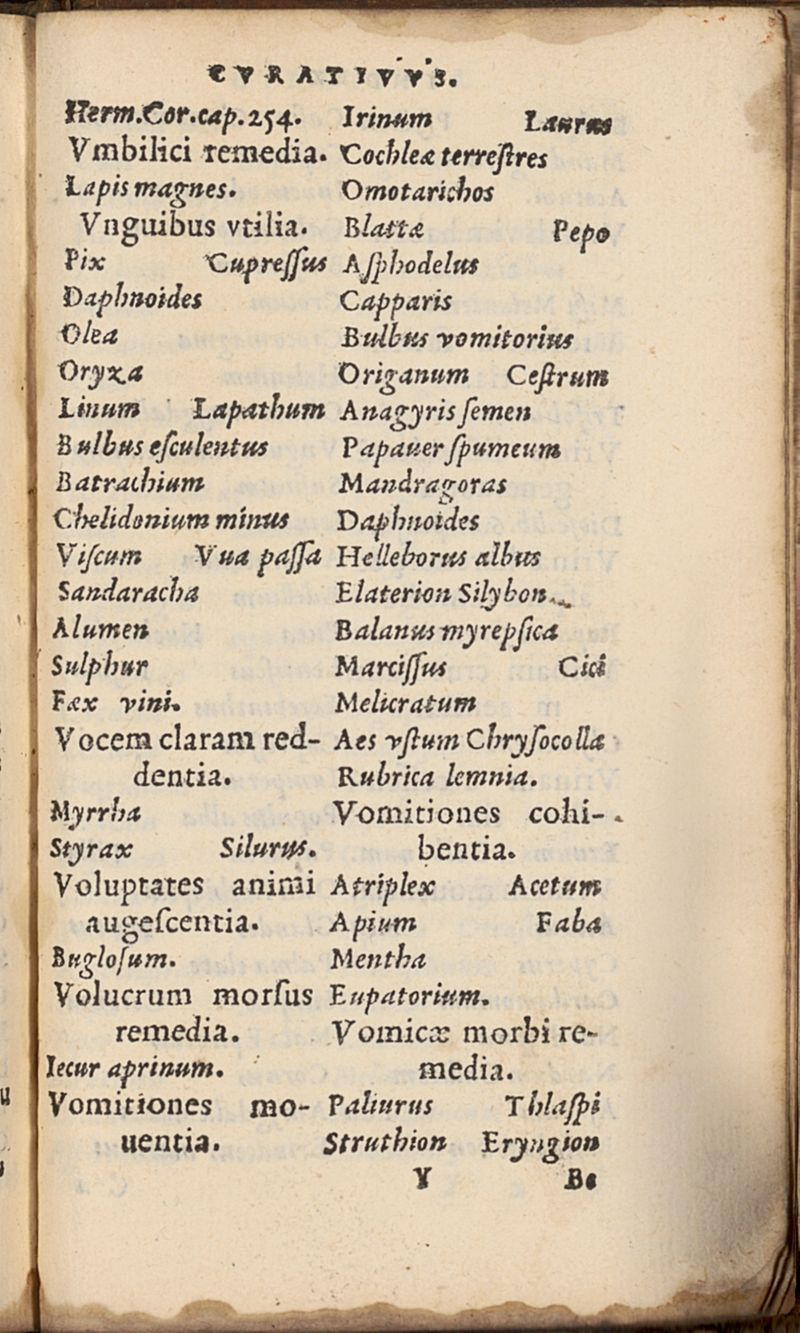 CVRATIVVS.
Herm.Cor.cap.254.
Vmbilici remedia.
Lapis magnes.
Vnguibus vtilia.
Pix Cupreſſus
Daphnoides
Olea
Oryza
Linum Lapathum
Bulbus eſculentus
Batrachium
Chelidonium minus
Viſcum Vua paſſa
Sandaracha
Alumen
Sulphur
Fæx vini.
Vocem claram red-
dentia.
Myrrha
Styrax Silurus.
Voluptates animi
augeſcentia.
Bugloſum.
Volucrum morſus
remedia.
Iecur aprinum.
Vomitiones mo-
uentia.
Irinum Laurus
Cochleæ terreſtres
Omotarichos
Blattæ Pepo
Aſphodelus
Capparis
Bulbus vomitorius
Origanum Ceſtrum
Anagyris ſemen
Papauer ſpumeum
Mandragoras
Daphnoides
Helleborus albus
Elaterion Silybon
Balanus myrepſica
Marciſſus Cici
Melicratum
Aes vſtum Chryſocolla
Rubrica lemnia.
Vomitiones cohi-
bentia.
Atriplex Acetum
Apium Faba
Mentha
Eupatorium.
Vomicæ morbi re-
media.
Paliurus Thlaſpi
Struthion Eryngion
Y Be